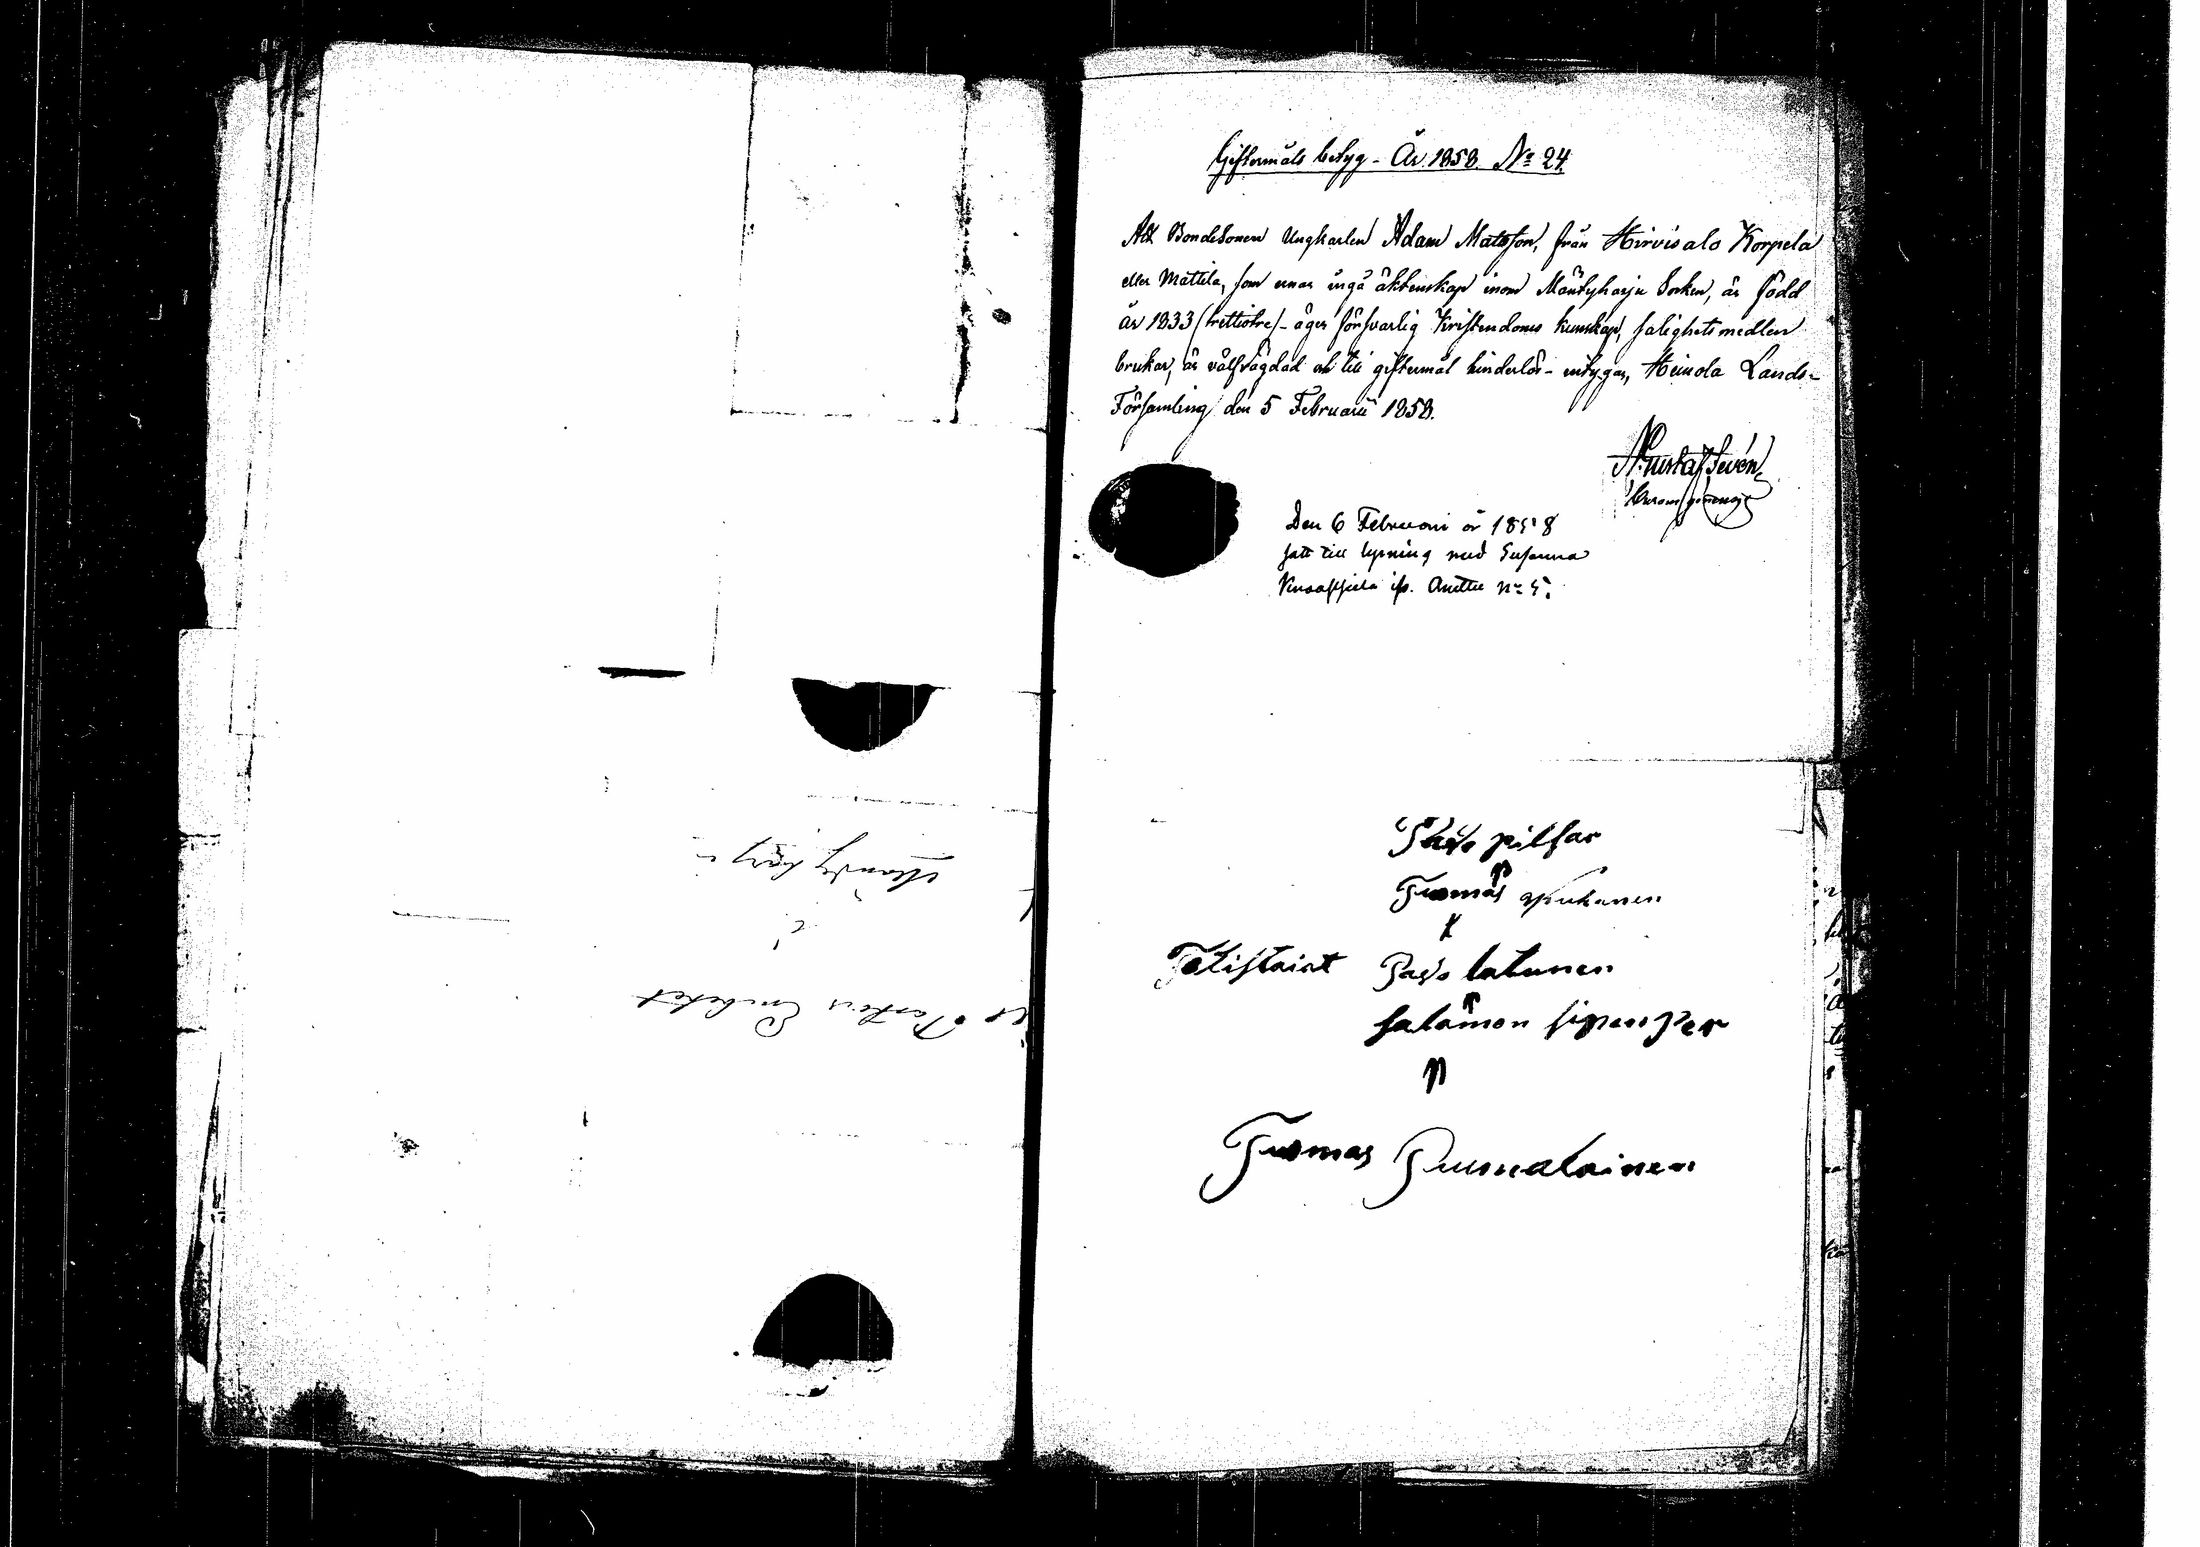 Pastors Embetet
i
Mändyharju
Giftermåls betyg - År 1858. No 24.
Att Bondesonen Ungkarlen Adam Matsson, från Hirvisalo Korpela
eller Mattila, som ernar ingå äktenskap inom Mäntyharju Socken, är född
år 1833 (trettiotre) - äger försvarlig Kristendoms kunskap, salighetsmedlen
brukar, är välfrägdad och till giftermål hinderlös - intygas, Heinola Lands-
Församling den 5 Februarii 1858.
Den 6 Februari år 1858
satt till lysning med Susanna
ifr. Anttu No 5.
Pavo pilfar
Tuomas
Totistaiat Pavo latunen
salamon
Tuomas Puumalainen